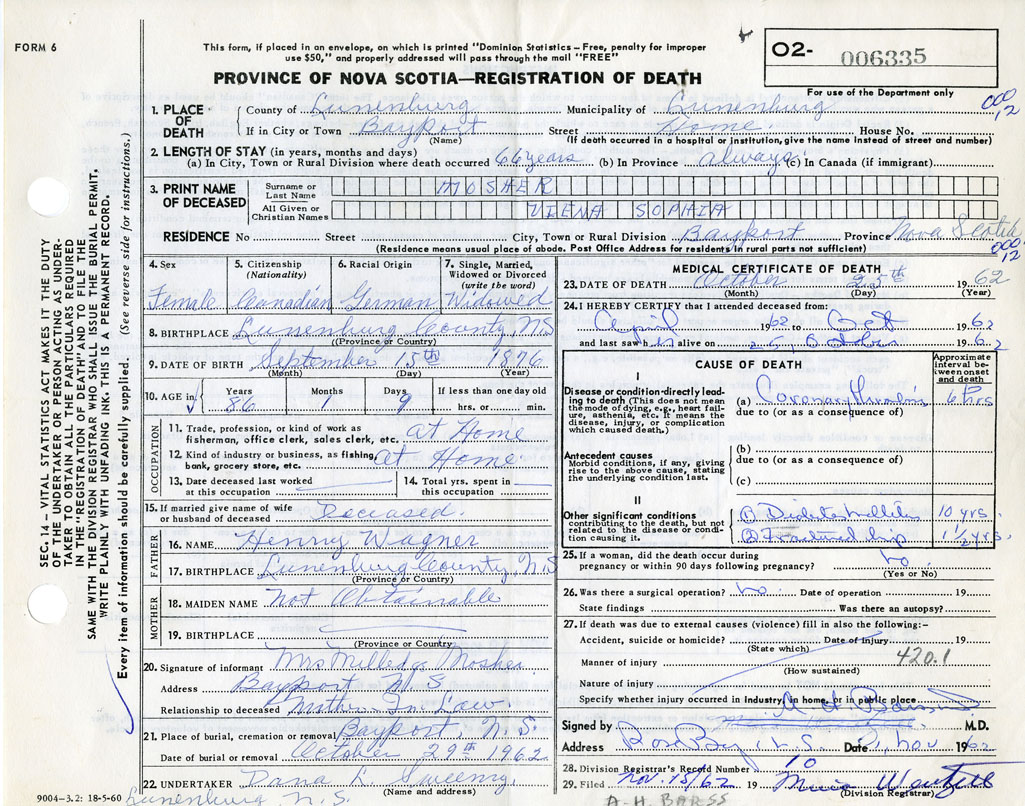 FORM 6
This form, if placed in an envelope, on which is printed "Dominion Statistics – Free, penalty for improper
use $50," and properly addressed will pass through the mail "FREE"
PROVINCE OF NOVA SCOTIA—REGISTRATION OF DEATH
O2- 006335
For use of the Department only
000
12
1. PLACE OF DEATH County of Lunenburg Municipality of Lunenburg
If in City or Town Bayport Street Home House No.
(Name) (If death occurred in a hospital or institution, give the name instead of street and number)
2. LENGTH OF STAY (in years, months and days)
(a) In City, Town or Rural Division where death occurred 66 years (b) In Province always (c) In Canada (if immigrant)
3. PRINT NAME OF DECEASED
Surname or Last Name MOSHER
All Given or Christian Names VIENA SOPHIA
RESIDENCE No Street City, Town or Rural Division Bayport Province Nova Scotia
(Residence means usual place of abode. Post Office Address for residents in rural parts not sufficient)
000
12
4. Sex Female
5. Citizenship (Nationality) Canadian
6. Racial Origin German
7. Single, Married, Widowed or Divorced (write the word) Widowed
8. BIRTHPLACE Lunenburg County N.S.
(Province or Country)
9. DATE OF BIRTH September 15th 1876
(Month) (Day) (Year)
10. AGE in Years 86 Months 1 Days 9 If less than one day old hrs. or min.
OCCUPATION
11. Trade, profession, or kind of work as fisherman, office clerk, sales clerk, etc. at Home
12. Kind of industry or business, as fishing, bank, grocery store, etc. at Home
13. Date deceased last worked at this occupation
14. Total yrs. spent in this occupation
15. If married give name of wife or husband of deceased Deceased.
FATHER
16. NAME Henry Wagner
17. BIRTHPLACE Lunenburg County, N.S
(Province or Country)
MOTHER
18. MAIDEN NAME Not Obtainable
19. BIRTHPLACE
(Province or Country)
20. Signature of informant Mrs Milledge Mosher
Address Bayport N.S
Relationship to deceased Mother In Law
21. Place of burial, cremation or removal Bayport, N.S.
Date of burial or removal October 29th 1962
22. UNDERTAKER Dana L Sweeny
(Name and address)
Lunenburg N.S.
9004–3.2: 18-5-60
MEDICAL CERTIFICATE OF DEATH
23. DATE OF DEATH October 25th 1962
(Month) (Day) (Year)
24. I HEREBY CERTIFY that I attended deceased from:
April 1962 to Oct 1962
and last saw her alive on October 1962
CAUSE OF DEATH
Approximate interval between onset and death
I
Disease or condition directly leading to death (This does not mean the mode of dying, e.g., heart failure, asthenia, etc. It means the disease, injury, or complication which caused death.)
(a) Coronary Thrombosis 6 hrs
due to (or as a consequence of)
Antecedent causes
Morbid conditions, if any, giving rise to the above cause, stating the underlying condition last.
(b)
due to (or as a consequence of)
(c)
II
Other significant conditions
contributing to the death, but not related to the disease or condition causing it.
Diabetes Mellitus 10 yrs.
Fractured hip 1½ yrs.
25. If a woman, did the death occur during pregnancy or within 90 days following pregnancy? no.
(Yes or No)
26. Was there a surgical operation? no. Date of operation 19
State findings Was there an autopsy?
27. If death was due to external causes (violence) fill in also the following:–
Accident, suicide or homicide? Date of injury 19
(State which)
Manner of injury 420.1
(How sustained)
Nature of injury
Specify whether injury occurred in industry, in home, or in public place
Signed by M.D.
Address Rose Bay, N.S. Date Nov 1962
28. Division Registrar's Record Number 10
29. Filed Nov. 15/62 19
(Division Registrar)
A.H. BARSS
SEC. 14 – VITAL STATISTICS ACT MAKES IT THE DUTY
OF THE UNDERTAKER OR PERSON ACTING AS UNDERTAKER
TO OBTAIN ALL THE PARTICULARS REQUIRED
IN THE "REGISTRATION OF DEATH" AND TO FILE THE
SAME WITH THE DIVISION REGISTRAR WHO SHALL ISSUE THE BURIAL PERMIT.
WRITE PLAINLY WITH UNFADING INK. THIS IS A PERMANENT RECORD.
Every item of information should be carefully supplied. (See reverse side for instructions.)